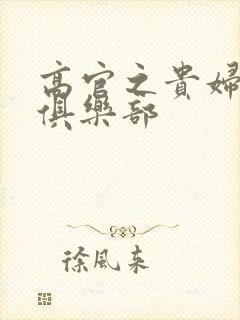 高官之貴婦
俱樂部
徐風来